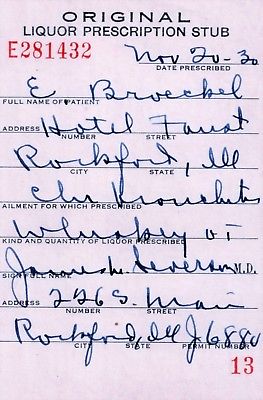 ORIGINAL
LIQUOR PRESCRIPTION STUB
E281432 Nov 20-30
DATE PRESCRIBED
E. Broeckel
FULL NAME OF PATIENT
ADDRESS Hotel Faust
NUMBER STREET
Rockford, Ill
CITY STATE
Chr Bronchitis
AILMENT FOR WHICH PRESCRIBED
Whiskey OI
KIND AND QUANTITY OF LIQUOR PRESCRIBED
James H. Severson M.D.
SIGN FULL NAME
ADDRESS 226 S. Main
NUMBER STREET
Rockford, Ill
CITY STATE PERMIT NUMBER
13